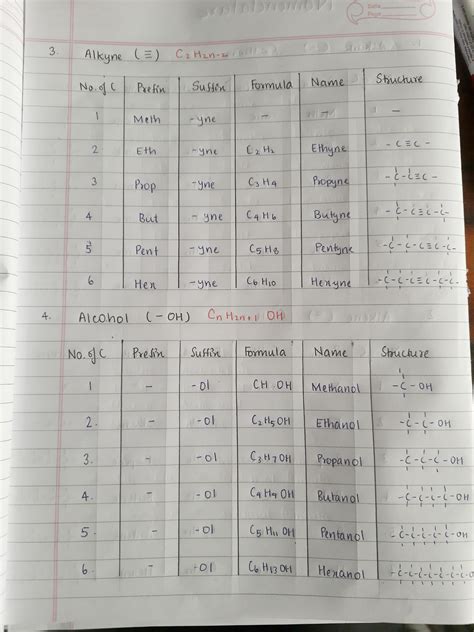 Date
Page
3. Alkyne (≡) C2H2n-2
No. of C Prefin Suffin Formula Name Structure
1 Meth -yne - - -
2 Eth -yne C2H2 Ethyne -C≡C-
3 Prop -yne C3H4 Propyne -C-C≡C-
4 But -yne C4H6 Butyne -C-C≡C-C-
5 Pent -yne C5H8 Pentyne -C-C-C≡C-C-
6 Hex -yne C6H10 Hexyne -C-C-C≡C-C-C-
4. Alcohol (-OH) CnH2n+1 OH
No. of C Prefin Suffin Formula Name Structure
1 - -ol CH OH Methanol -C-OH
2. - -ol C2H5OH Ethanol -C-C-OH
3. - -ol C3H7OH Propanol -C-C-C-OH
4. - -ol C4H9OH Butanol -C-C-C-C-OH
5 - -ol C5H11OH Pentanol -C-C-C-C-C-OH
6. - -ol C6H13OH Hexanol -C-C-C-C-C-C-OH